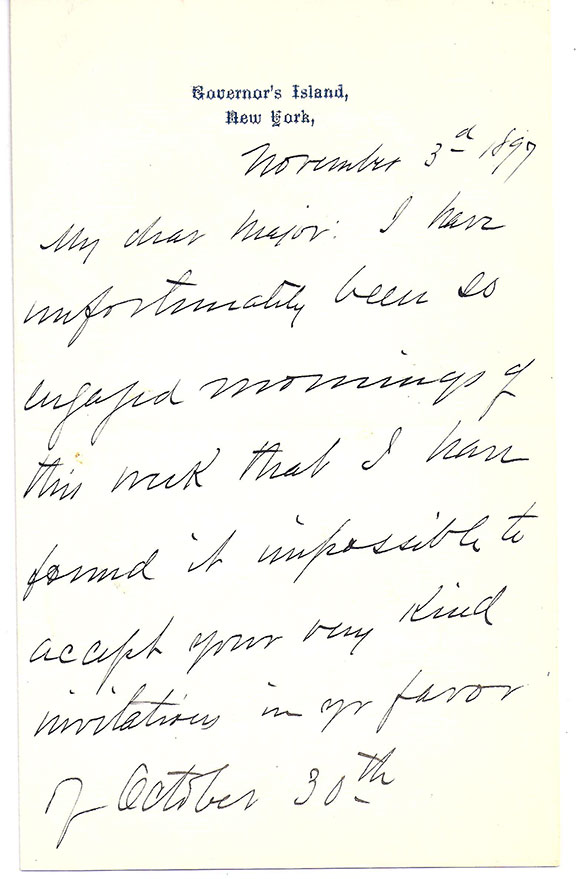 Governor's Island,
New York,
November 3d 1897
My dear Major: I have
unfortunately been so
engaged mornings of
this week that I have
found it impossible to
accept your very kind
invitations in yr favor
of October 30th